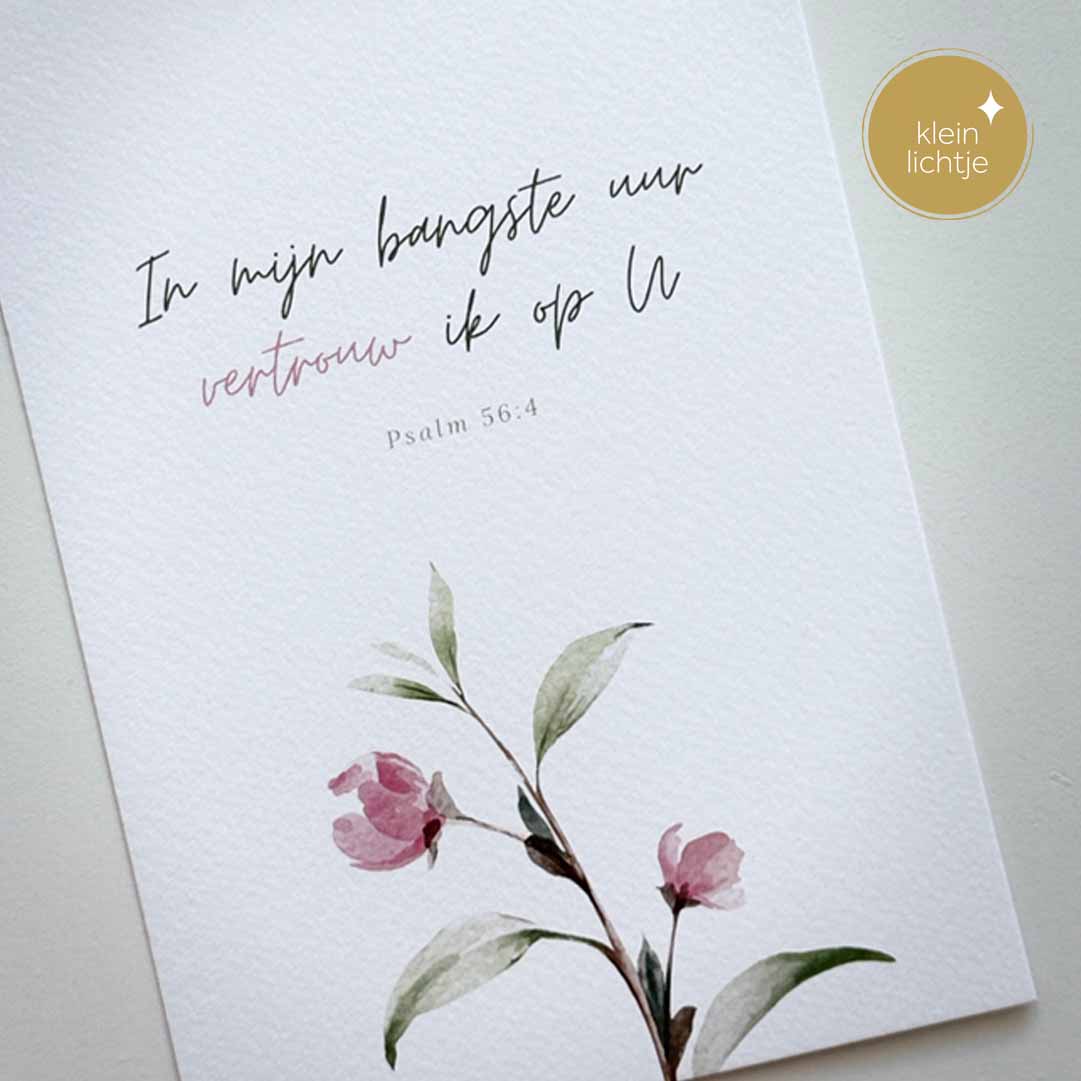 klein
lichtje
In mijn bangste uur
vertrouw ik op U
Psalm 56:4